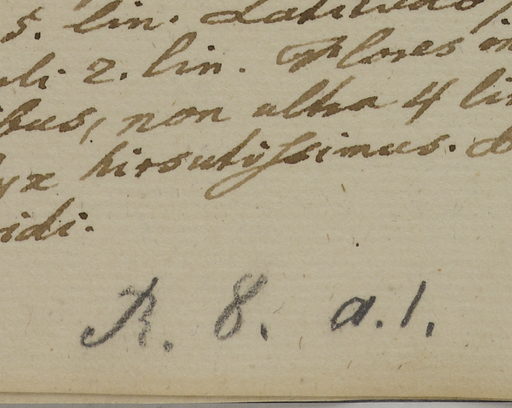 5. lin. Latitudo
2. lin. Flores in
non ultra 4 lin
hirsutissimus.
R. 8. a.1.